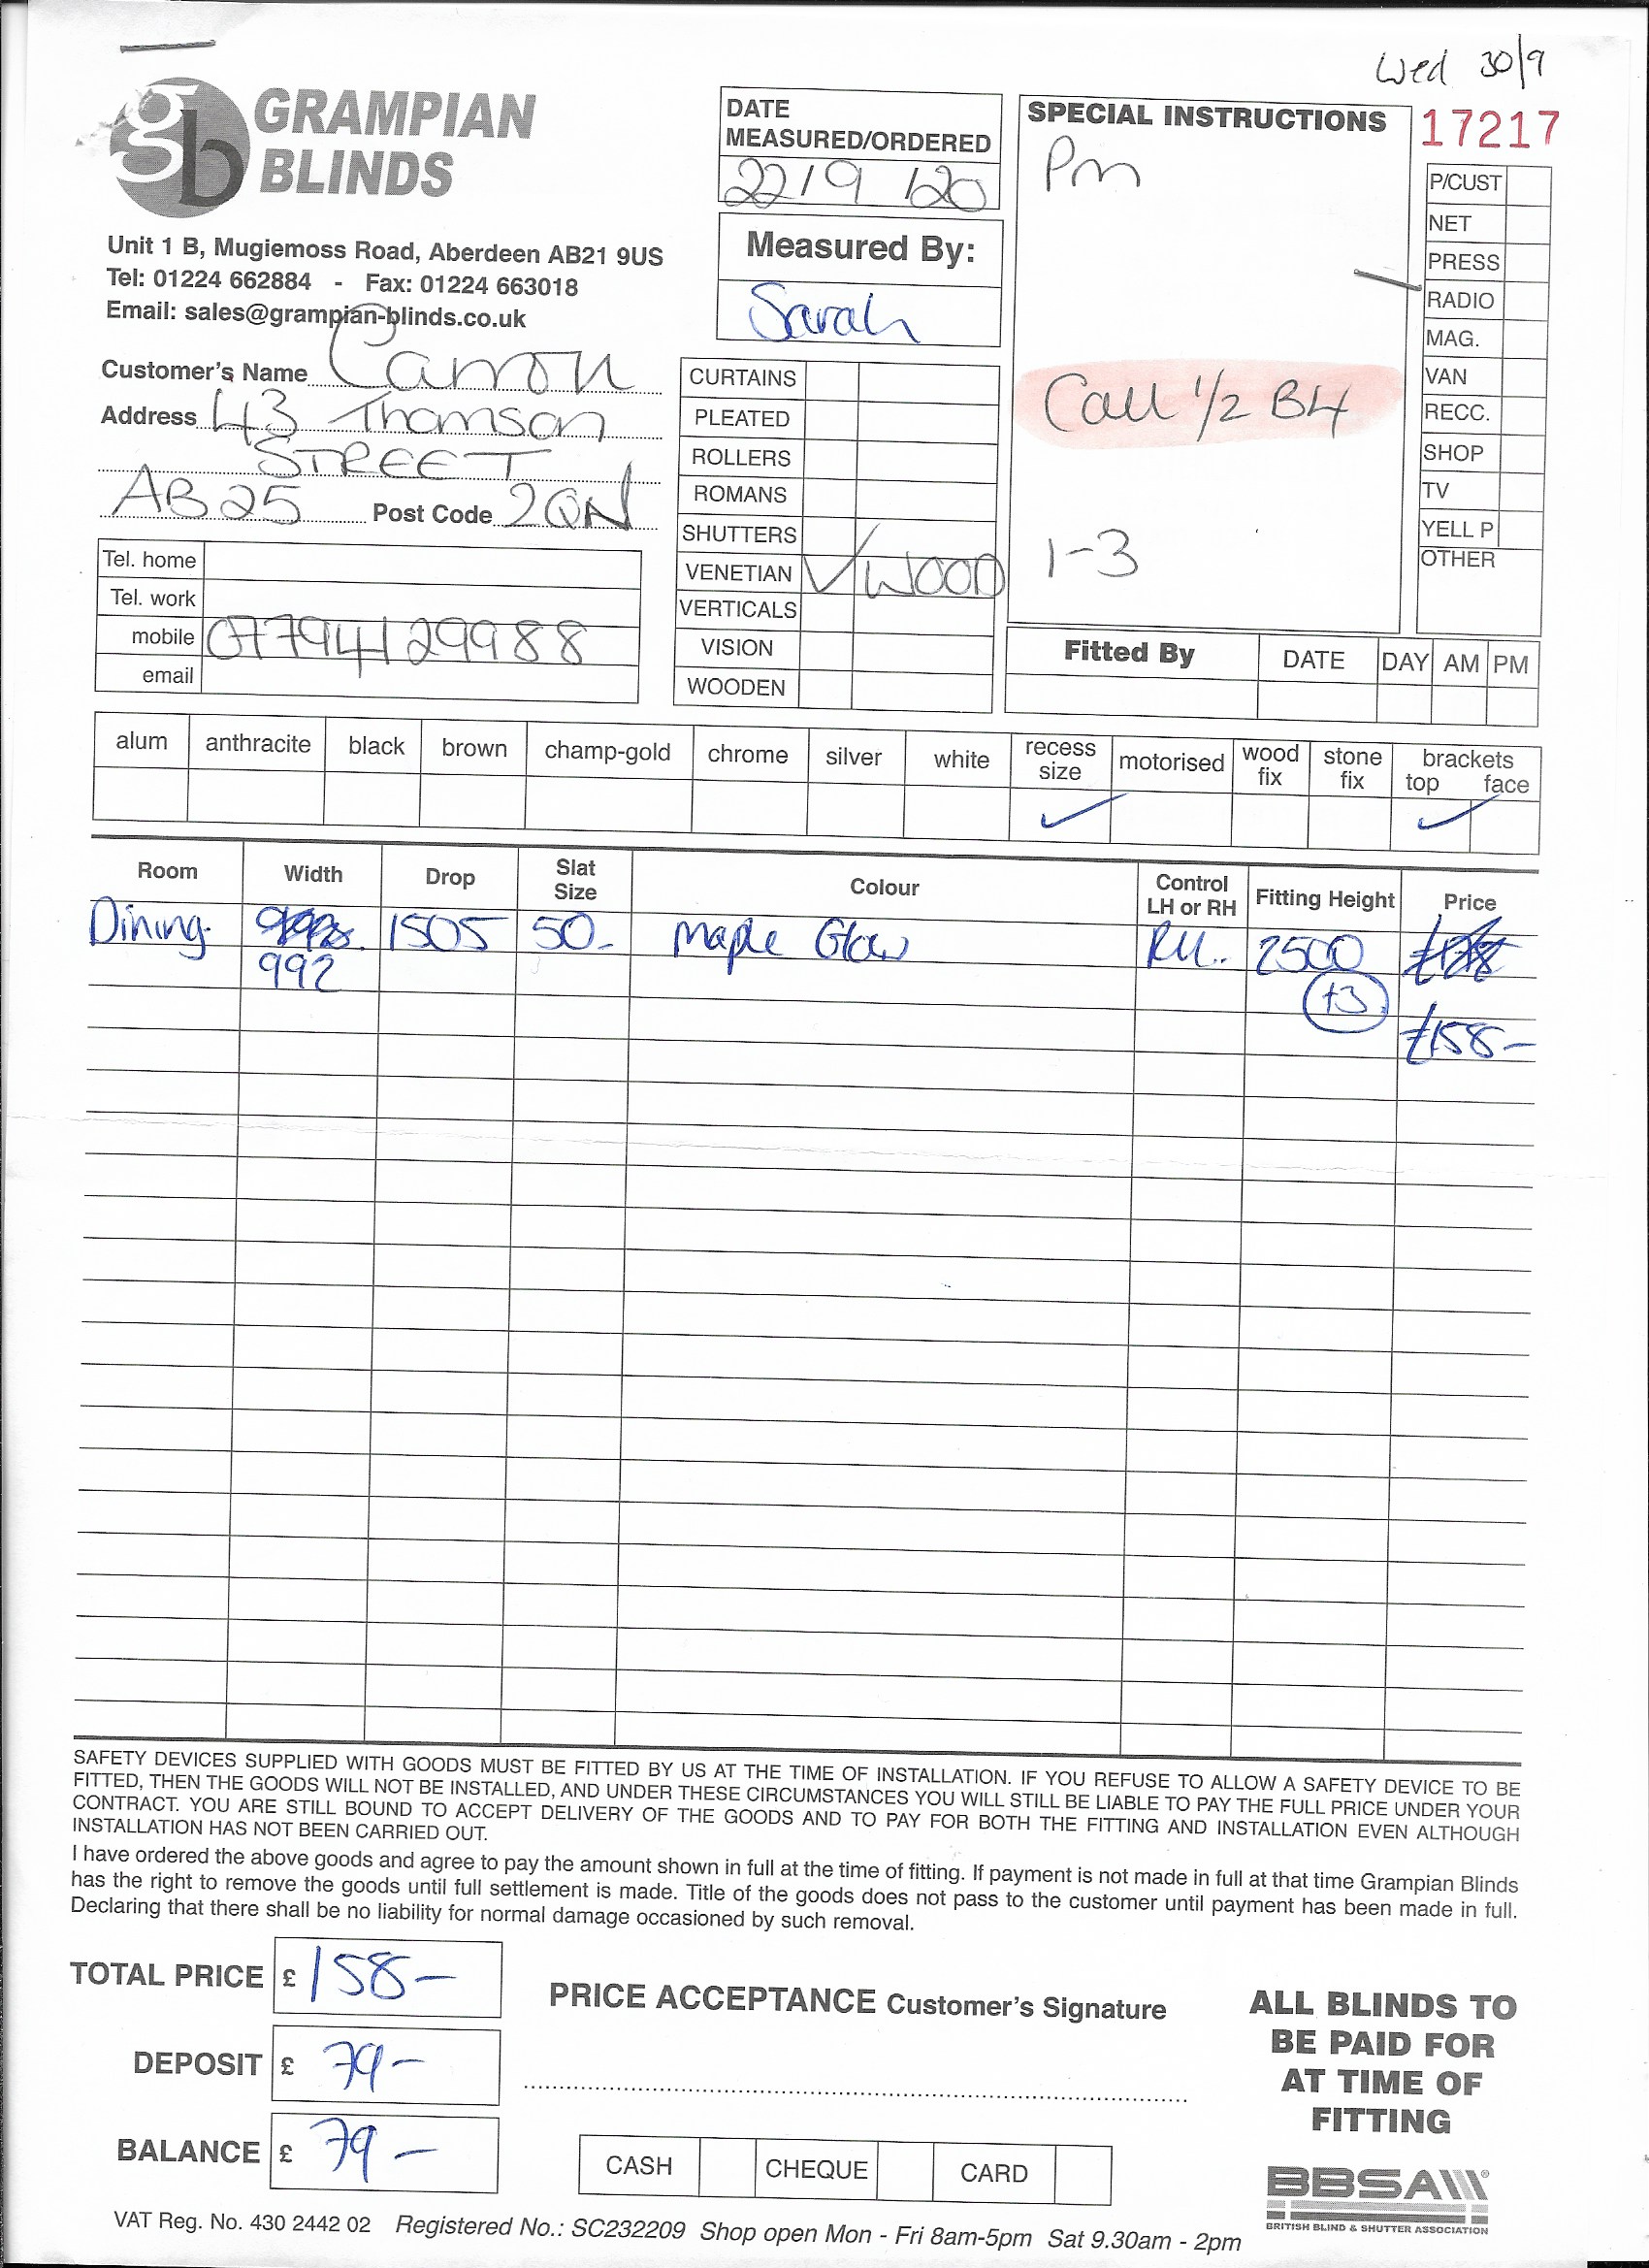 Wed 30/9
GRAMPIAN
BLINDS
Unit 1 B, Mugiemoss Road, Aberdeen AB21 9US
Tel: 01224 662884 - Fax: 01224 663018
Email: sales@grampian-blinds.co.uk
Customer's Name
Address 43 Thomson
STREET
AB25 Post Code 2QN
Tel. home
Tel. work
mobile 07794129988
email
DATE
MEASURED/ORDERED
22/9/20
Measured By:
Sarah
CURTAINS
PLEATED
ROLLERS
ROMANS
SHUTTERS
VENETIAN ✓ WOOD
VERTICALS
VISION
WOODEN
SPECIAL INSTRUCTIONS
Pm
Call 1/2 B4
1-3
17217
P/CUST
NET
PRESS
RADIO
MAG.
VAN
RECC.
SHOP
TV
YELL P
OTHER
Fitted By DATE DAY AM PM
alum anthracite black brown champ-gold chrome silver white recess size motorised wood fix stone fix brackets top face
✓ ✓
Room Width Drop Slat Size Colour Control LH or RH Fitting Height Price
Dining 1505 50- Maple Glow RH.. 2500
992 +3
£158-
SAFETY DEVICES SUPPLIED WITH GOODS MUST BE FITTED BY US AT THE TIME OF INSTALLATION. IF YOU REFUSE TO ALLOW A SAFETY DEVICE TO BE
FITTED, THEN THE GOODS WILL NOT BE INSTALLED, AND UNDER THESE CIRCUMSTANCES YOU WILL STILL BE LIABLE TO PAY THE FULL PRICE UNDER YOUR
CONTRACT. YOU ARE STILL BOUND TO ACCEPT DELIVERY OF THE GOODS AND TO PAY FOR BOTH THE FITTING AND INSTALLATION EVEN ALTHOUGH
INSTALLATION HAS NOT BEEN CARRIED OUT.
I have ordered the above goods and agree to pay the amount shown in full at the time of fitting. If payment is not made in full at that time Grampian Blinds
has the right to remove the goods until full settlement is made. Title of the goods does not pass to the customer until payment has been made in full.
Declaring that there shall be no liability for normal damage occasioned by such removal.
TOTAL PRICE £ 158-
DEPOSIT £ 79-
BALANCE £ 79-
PRICE ACCEPTANCE Customer's Signature
CASH CHEQUE CARD
ALL BLINDS TO
BE PAID FOR
AT TIME OF
FITTING
BBSA
BRITISH BLIND & SHUTTER ASSOCIATION
VAT Reg. No. 430 2442 02 Registered No.: SC232209 Shop open Mon - Fri 8am-5pm Sat 9.30am - 2pm